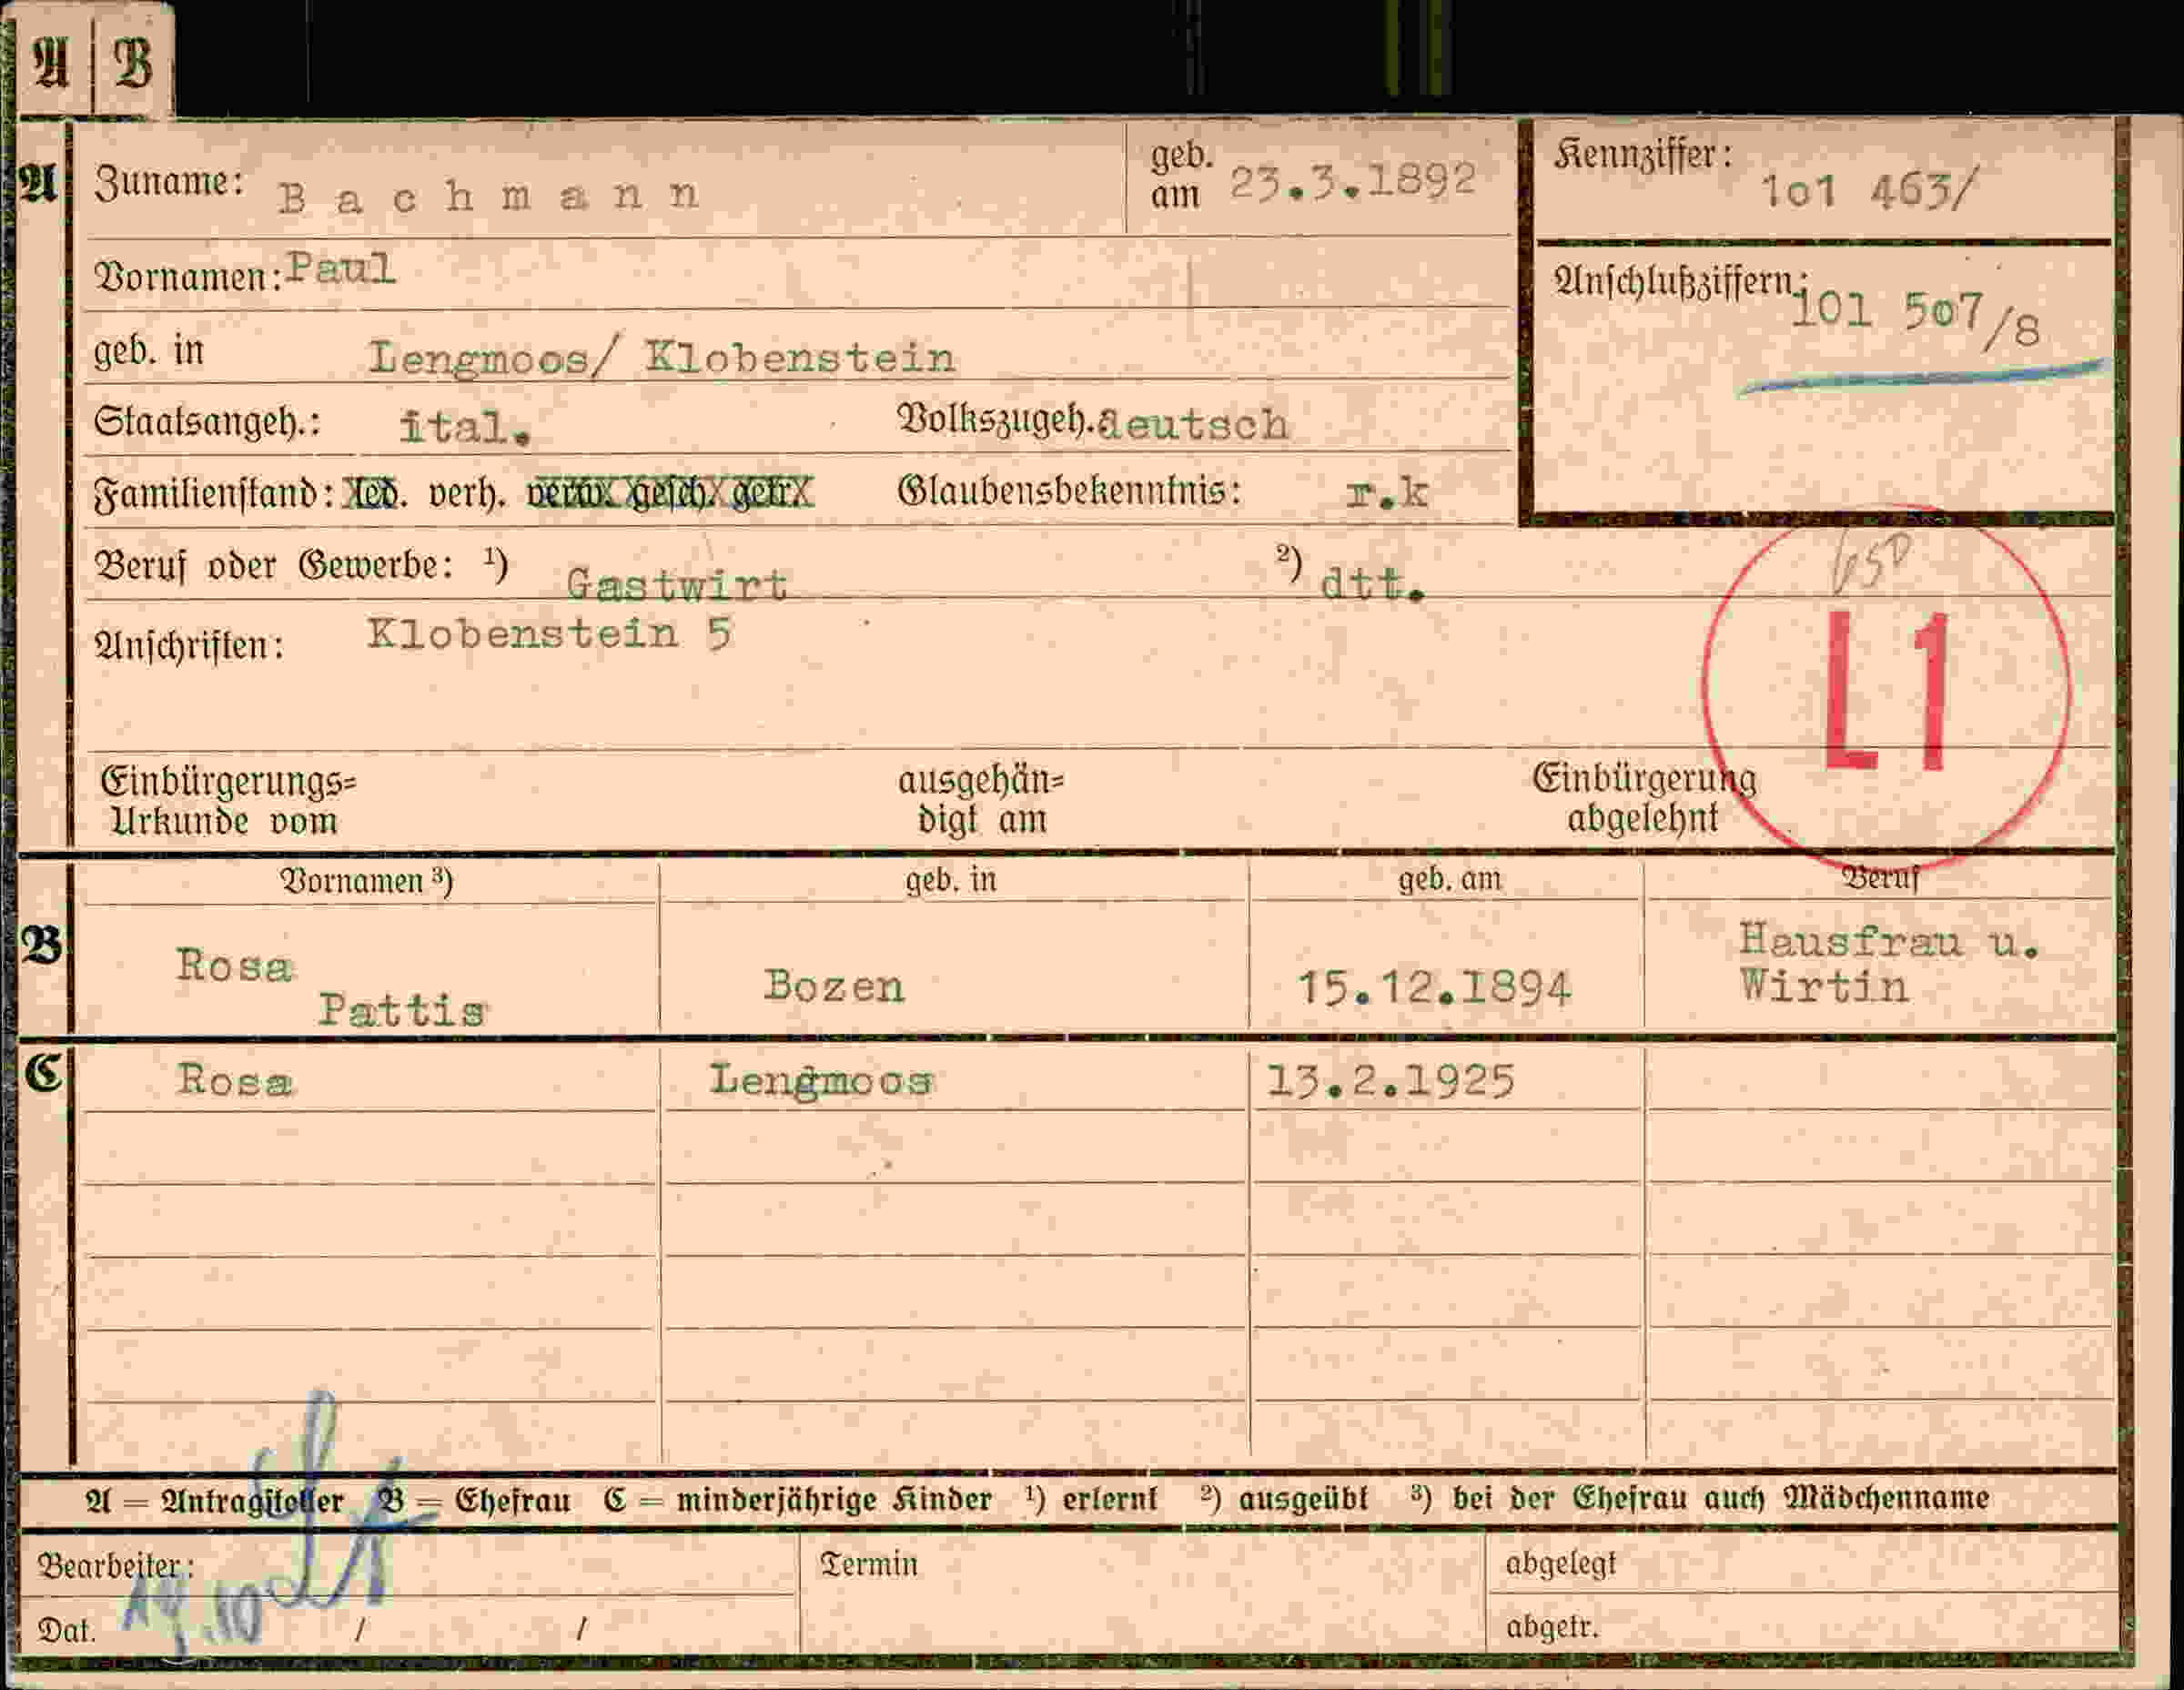 A B
A Zuname: Bachmann geb. am 23.3.1892
Kennziffer: 101 463/
Vornamen: Paul
Anschlußziffern: 101 507/8
geb. in Lengmoos/ Klobenstein
Staatsangeh.: ital. Volkszugeh. deutsch
Familienstand: led. verh. verw. gesch. getr. Glaubensbekenntnis: r.k
Beruf oder Gewerbe: ¹) Gastwirt ²) dtt.
Anschriften: Klobenstein 5
L1
Einbürgerungs= ausgehän= Einbürgerung
Urkunde vom digt am abgelehnt
Vornamen ³) geb. in geb. am Beruf
B Rosa Hausfrau u.
Pattis Bozen 15.12.1894 Wirtin
C Rosa Lengmoos 13.2.1925
A = Antragsteller B = Ehefrau C = minderjährige Kinder ¹) erlernt ²) ausgeübt ³) bei der Ehefrau auch Mädchenname
Bearbeiter: Termin abgelegt
Dat. / / abgetr.